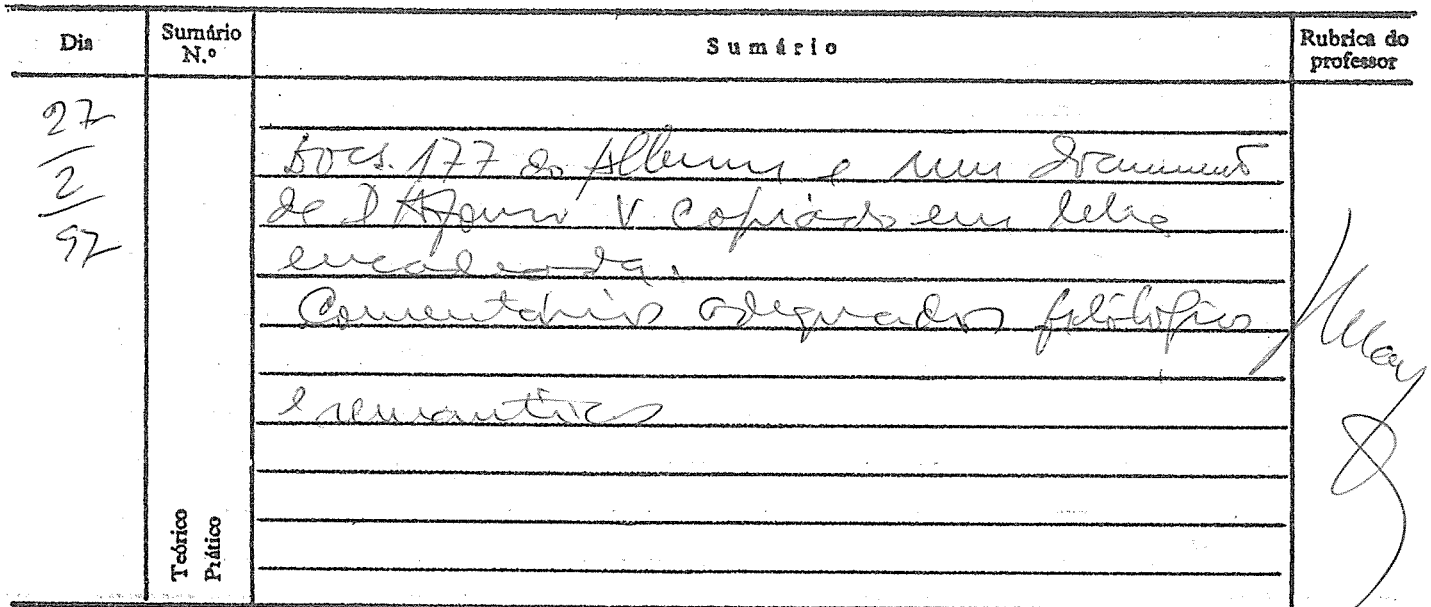 Dia
Sumário N.º
Sumário
Rubrica do professor
27
2
97
Docs. 177 do Album e um documento
de D Afonso V copiado em letra
encadeada.
Comentários adequados filológicos
e semanticos
Teórico
Prático